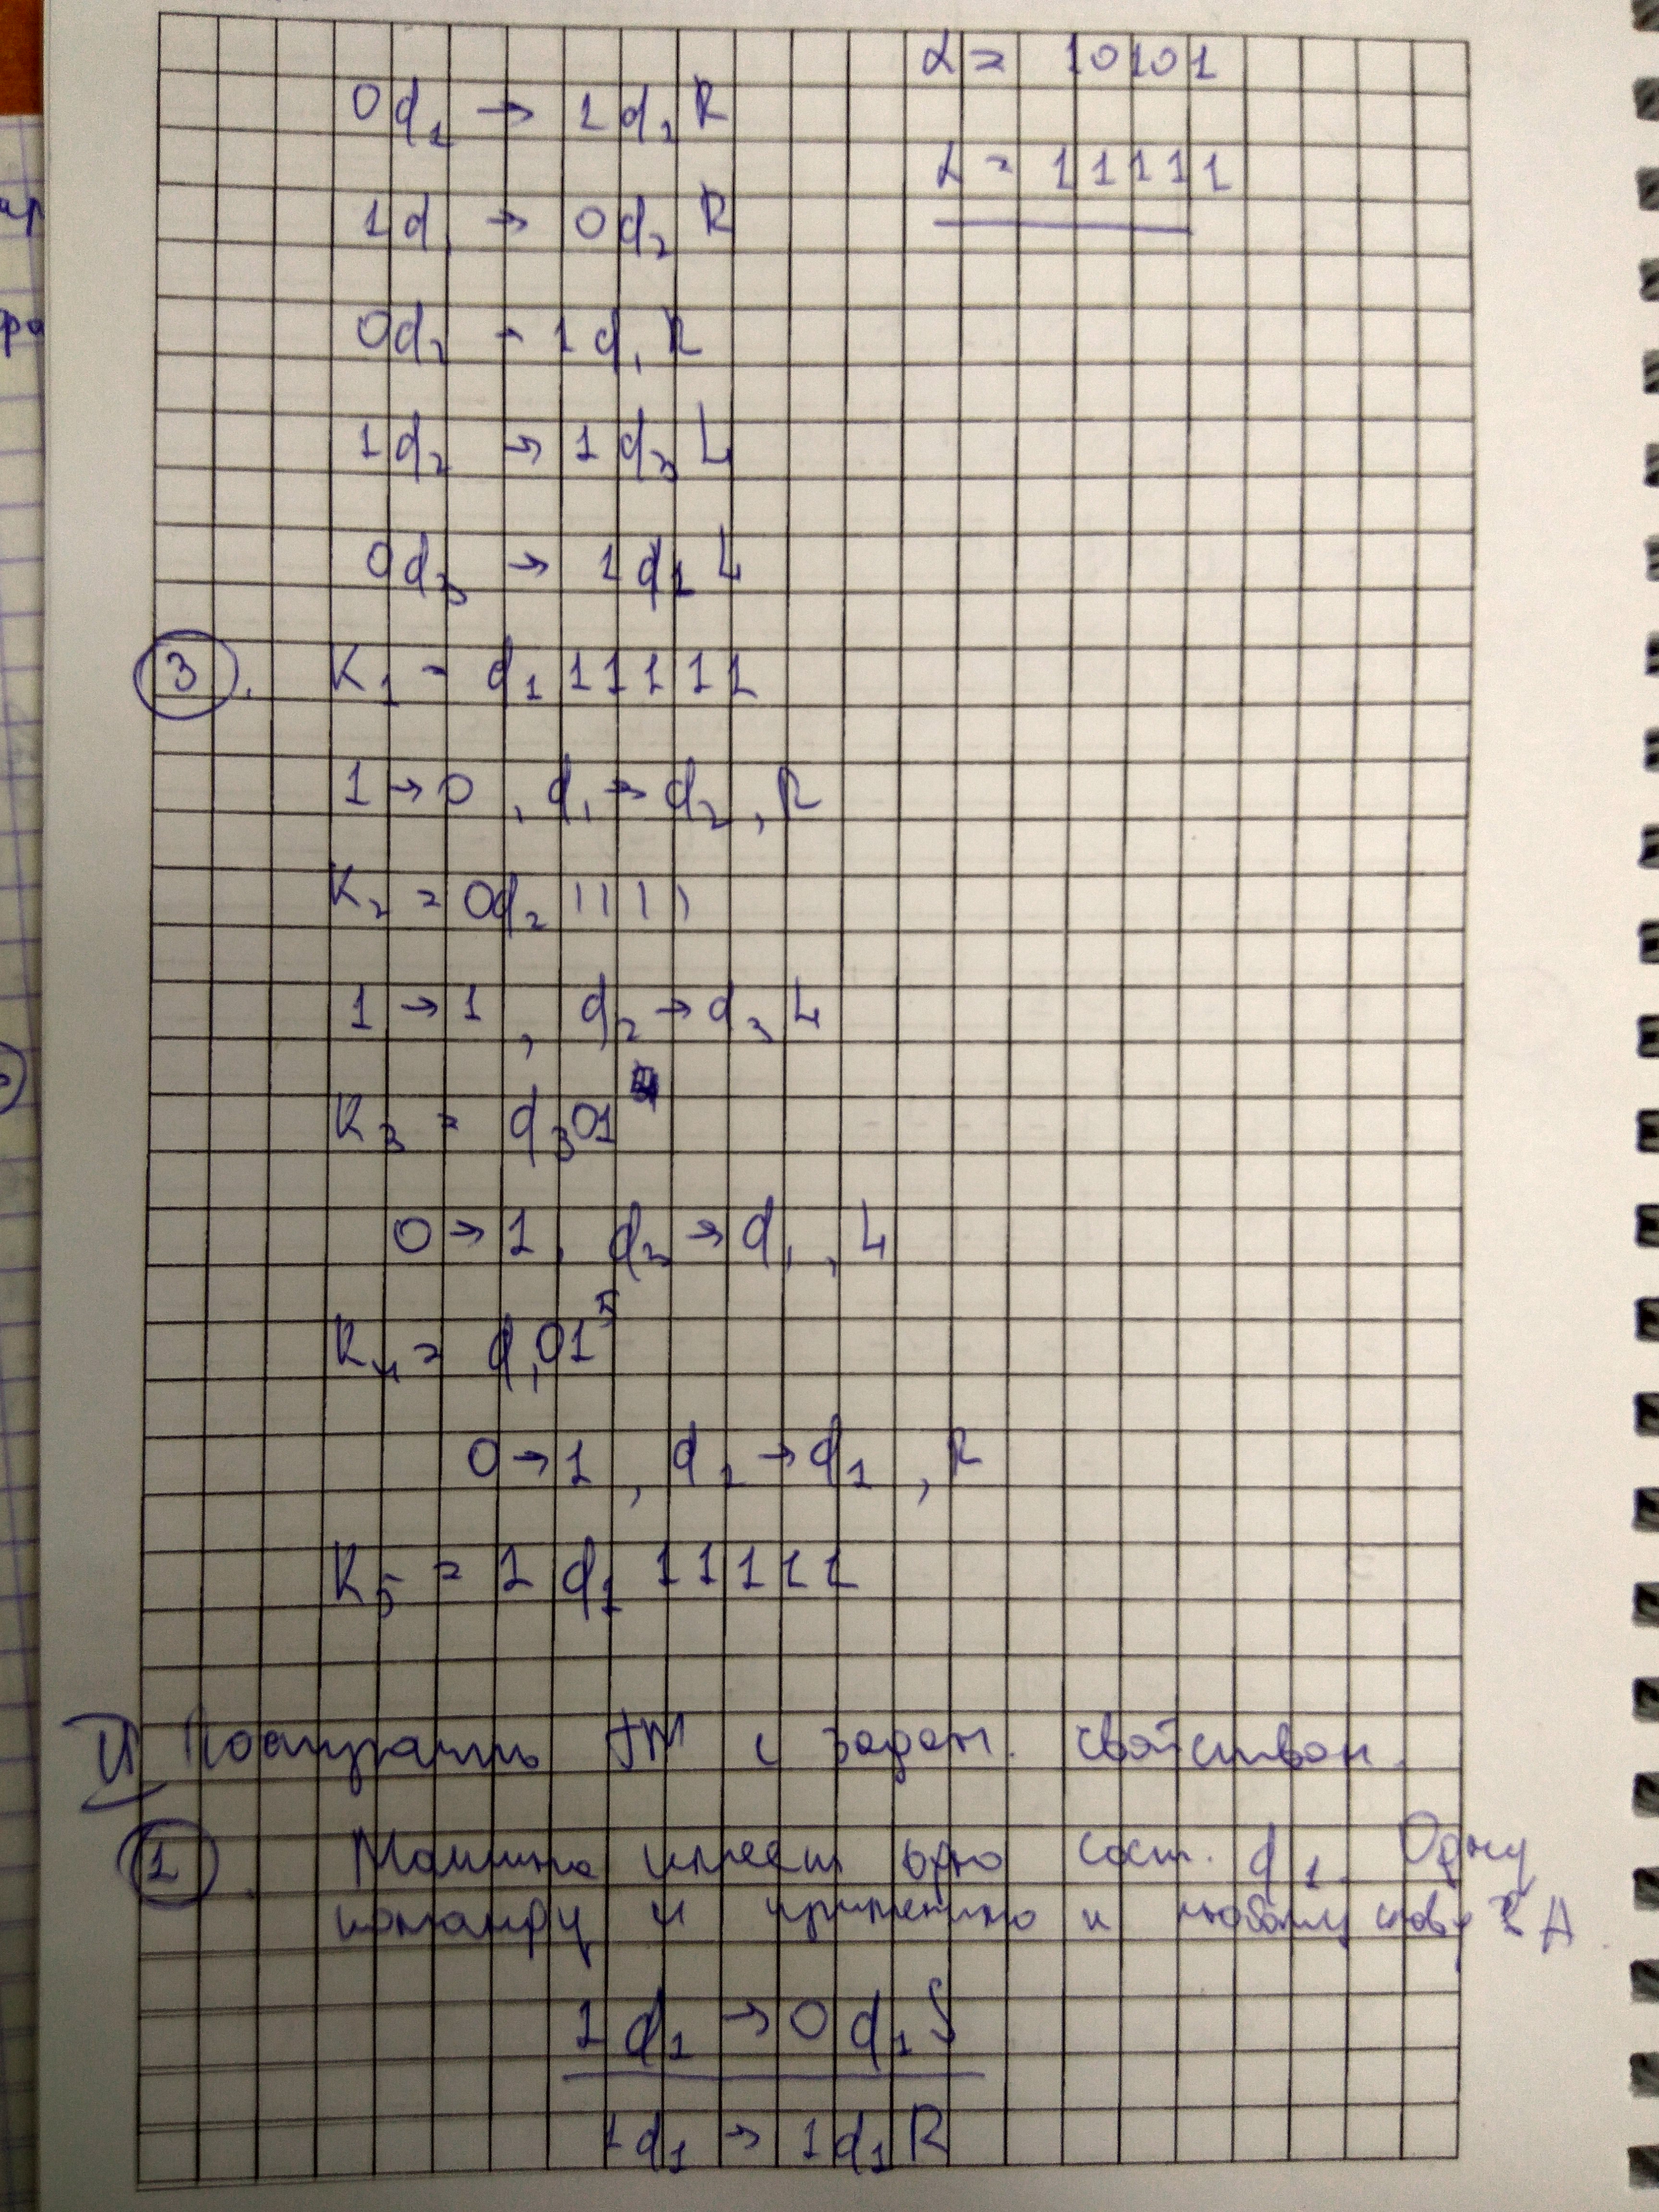 α = 10101
0q₁ → 1q₂R
α = 11111
1q₁ → 0q₂R
0q₂ → 1q₁R
1q₂ → 1q₃L
0q₃ → 1q₁L
3. K₁ = q₁11111
1→0, q₁→q₂, R
K₂ = 0q₂1111
1→1, q₂→q₃ L
K₃ = q₃01
0→1, q₃→q₁, L
K₄ = q₁01⁵
0→1, q₂→q₁, R
K₅ = 1q₁11111
II Построить TM с задан. свойствам.
1. Машина имеет одно сост. q₁. Одну
команду и применимо к любому слову в A
1q₁ → 0q₁S
1q₁ → 1q₁R